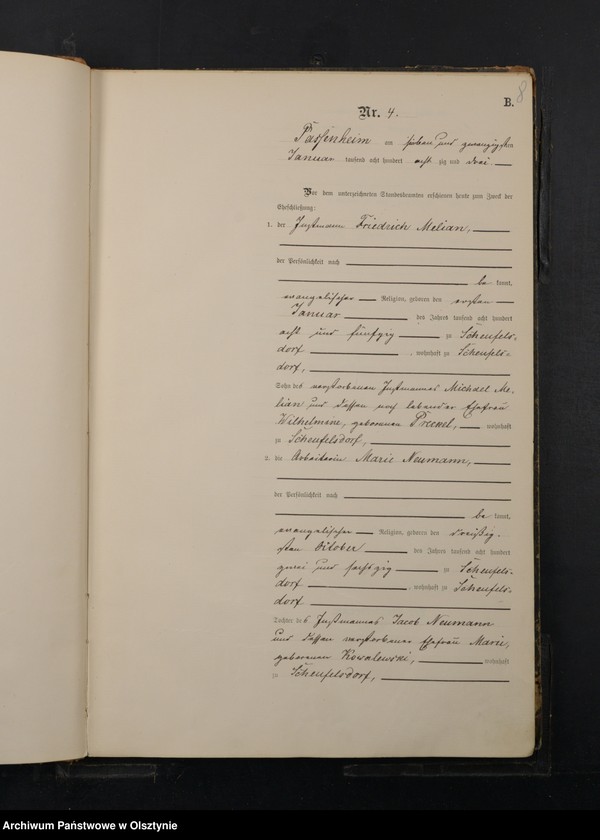 B.
8
Nr. 4.
Passenheim am sieben und zwanzigsten
Januar tausend acht hundert acht zig und drei.
Vor dem unterzeichneten Standesbeamten erschienen heute zum Zweck der
Eheschließung:
1. der Instmann Friedrich Melian,
der Persönlichkeit nach
be kannt,
evangelischer Religion, geboren den ersten
Januar des Jahres tausend acht hundert
acht und fünfzig zu Scheufels-
dorf, wohnhaft zu Scheufels-
dorf,
Sohn des verstorbenen Instmannes Michael Me-
lian und dessen noch lebender Ehefrau
Wilhelmine, geborenen wohnhaft
zu Scheufelsdorf,
2. die Arbeiterin Marie Neumann,
der Persönlichkeit nach
be kannt,
evangelischer Religion, geboren den dreißig-
sten Oktober des Jahres tausend acht hundert
zwei und sechszig zu Scheufels-
dorf, wohnhaft zu Scheufels-
dorf
Tochter des Instmannes Jacob Neumann
und dessen verstorbener Ehefrau Marie,
geborenen Kowalewski, wohnhaft
zu Scheufelsdorf,
Archiwum Państwowe w Olsztynie